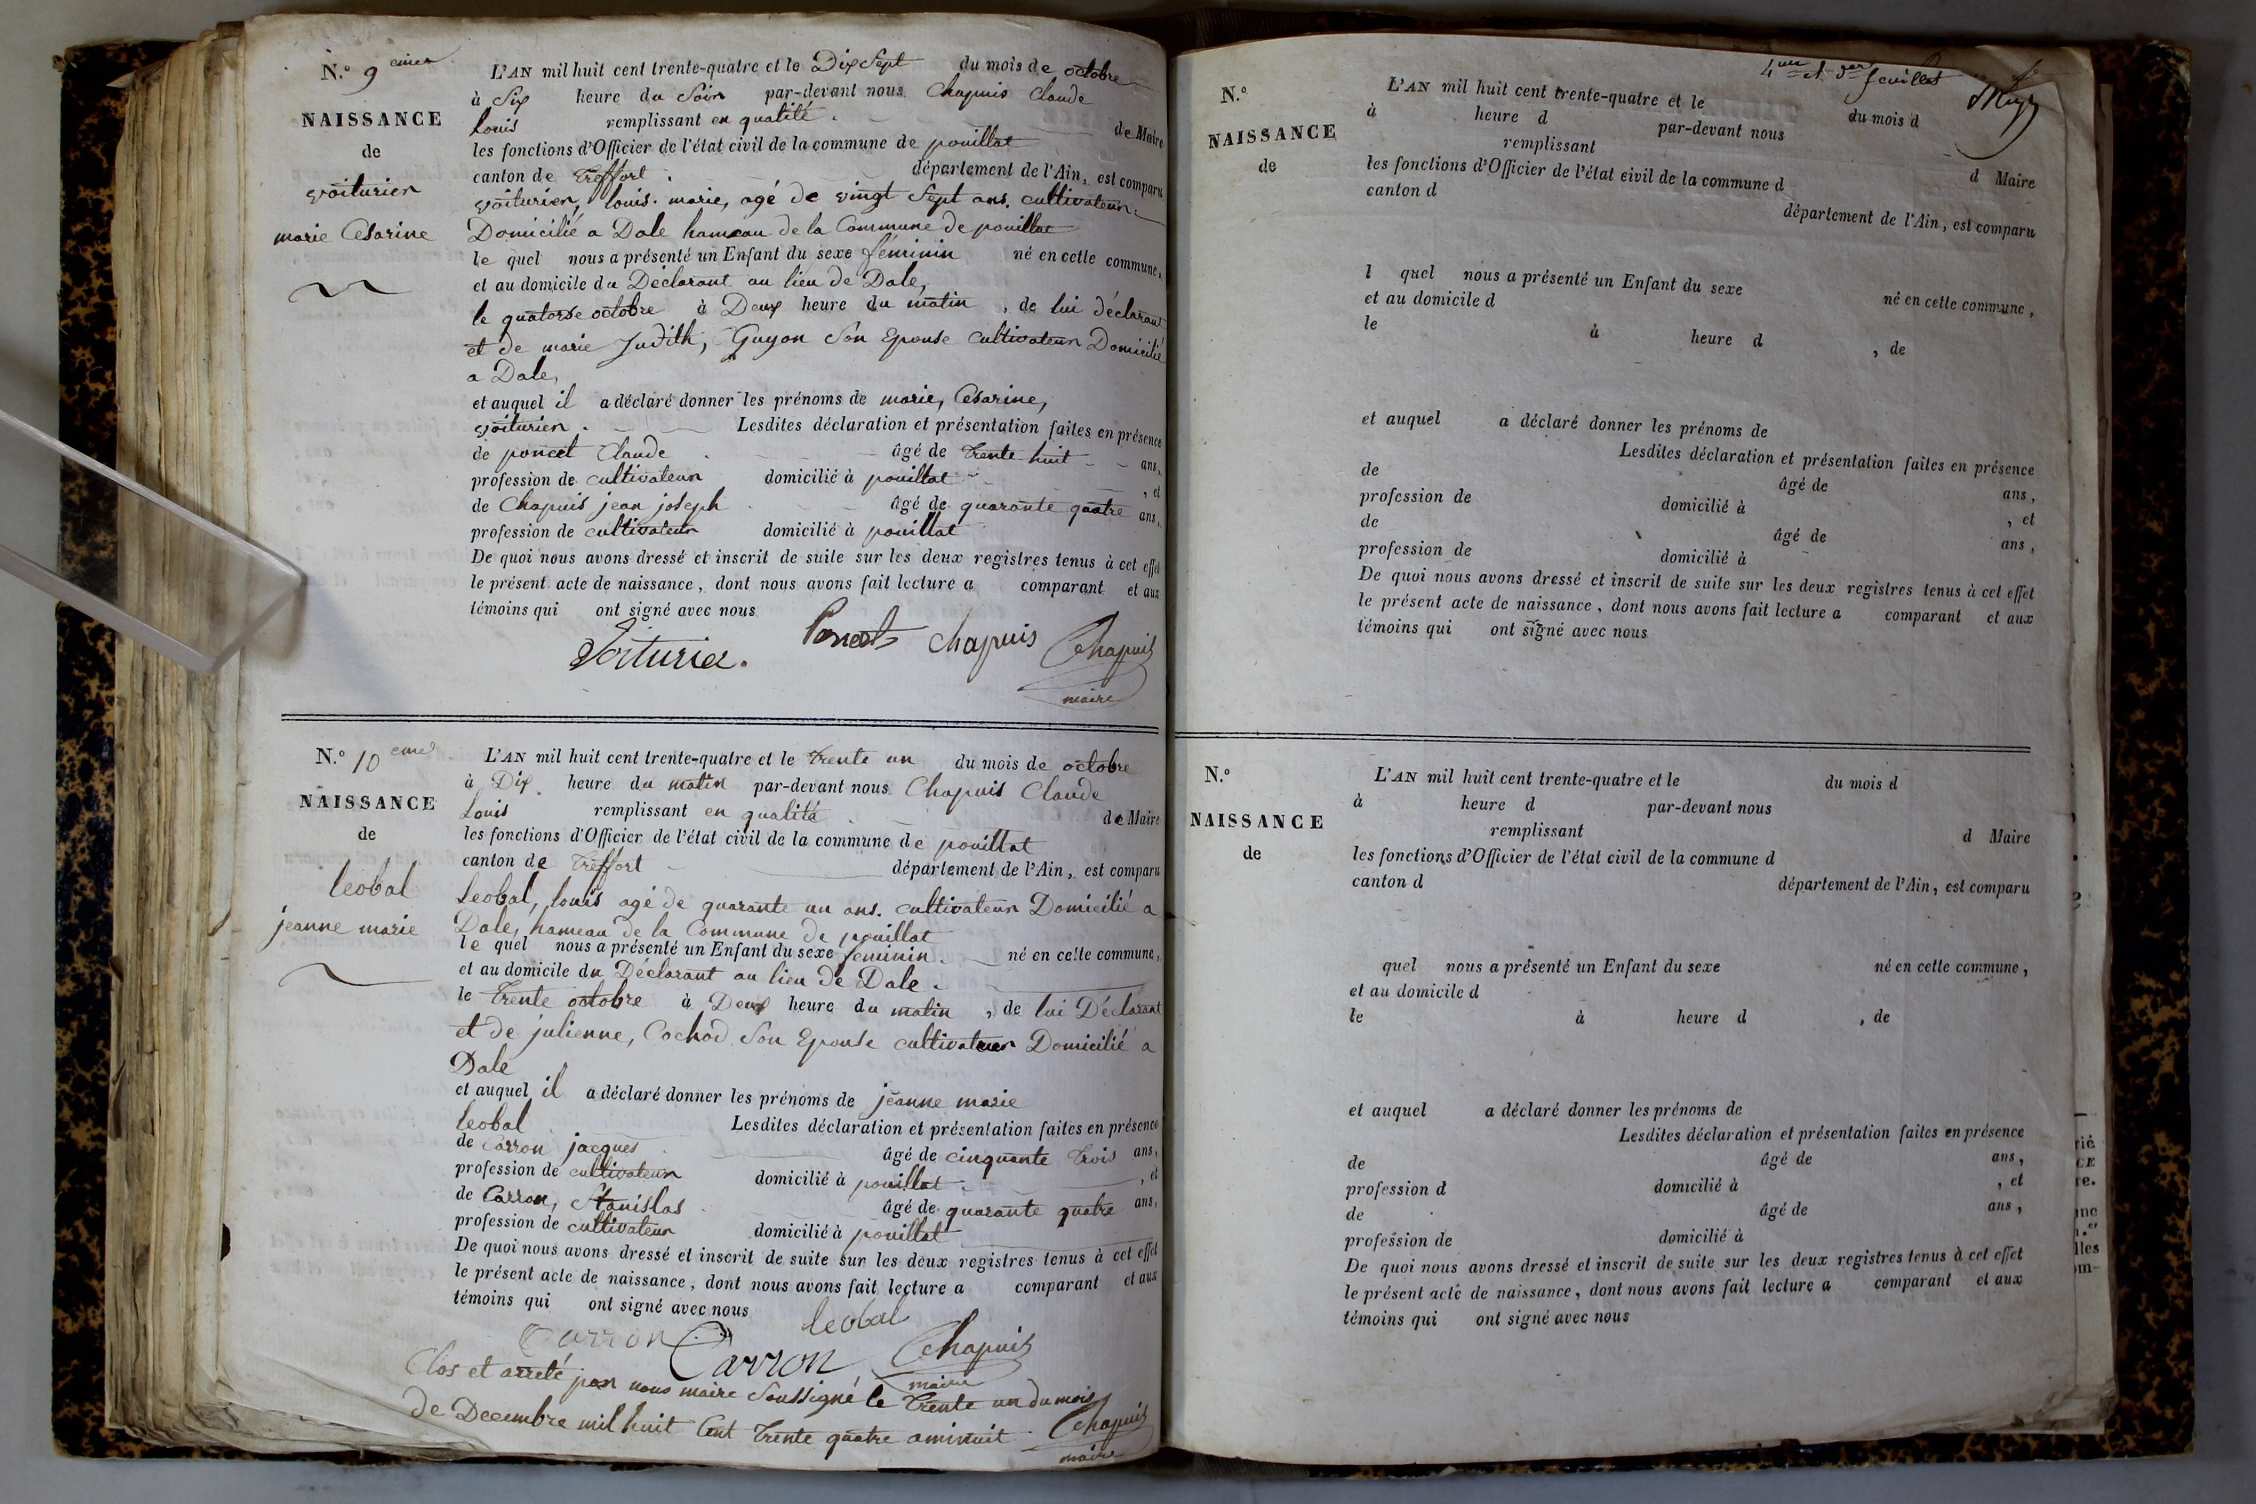 N.º 9 emes
NAISSANCE
de
Voiturier
marie Césarine
L'AN mil huit cent trente-quatre et le Dix Sept du mois de octobre
à Six heure du Soir par-devant nous Chapuis Claude
Louis remplissant en qualité de Maire
les fonctions d'Officier de l'état civil de la commune de pouillat
canton de Treffort département de l'Ain, est comparu
Voiturier, louis marie, agé de vingt Sept ans, cultivateur
Domicilié a Dale hameau de la Commune de pouillat
le quel nous a présenté un Enfant du sexe féminin né en cette commune,
et au domicile du Déclarant au lieu de Dale,
le quatorse octobre à Deux heure du matin, de lui déclarant
et de marie Judith, Guyon Son Epouse cultivateur Domicilié
a Dale,
et auquel il a déclaré donner les prénoms de marie, Césarine,
Voiturier. Lesdites déclaration et présentation faites en présence
de poncet Claude âgé de trente huit ans,
profession de cultivateur domicilié à pouillat, et
de Chapuis jean joseph âgé de quarante quatre ans,
profession de cultivateur domicilié à pouillat
De quoi nous avons dressé et inscrit de suite sur les deux registres tenus à cet effet
le présent acte de naissance, dont nous avons fait lecture a comparant et aux
témoins qui ont signé avec nous
Voiturier. Poncet Chapuis Chapuis
maire
N.º 10 eme
NAISSANCE
de
Leobal
jeanne marie
L'AN mil huit cent trente-quatre et le trente un du mois de octobre
à Dix heure du matin par-devant nous Chapuis Claude
Louis remplissant en qualité de Maire
les fonctions d'Officier de l'état civil de la commune de pouillat
canton de Treffort département de l'Ain, est comparu
Leobal, louis agé de quarante un ans. cultivateur Domicilié a
Dale, hameau de la Commune de pouillat
le quel nous a présenté un Enfant du sexe feminin né en cette commune,
et au domicile du Déclarant au lieu de Dale.
le trente octobre à Deux heure du matin, de lui Déclarant
et de julienne, Cochod Son Epouse cultivateur Domicilié a
Dale
et auquel il a déclaré donner les prénoms de jeanne marie
Leobal Lesdites déclaration et présentation faites en présence
de Carron jacques âgé de cinquante trois ans,
profession de cultivateur domicilié à pouillat, et
de Carron, Stanislas âgé de quarante quatre ans,
profession de cultivateur domicilié à pouillat
De quoi nous avons dressé et inscrit de suite sur les deux registres tenus à cet effet
le présent acte de naissance, dont nous avons fait lecture a comparant et aux
témoins qui ont signé avec nous
leobal
Carron Carron Chapuis
maire
Clos et arreté par nous maire Soussigné le trente un du mois
de Decembre mil huit Cent trente quatre aminuit. Chapuis
maire
4me et der feuillet
N.º
NAISSANCE
de
L'AN mil huit cent trente-quatre et le du mois d
à heure d par-devant nous
remplissant d Maire
les fonctions d'Officier de l'état civil de la commune d
canton d département de l'Ain, est comparu
l quel nous a présenté un Enfant du sexe né en cette commune,
et au domicile d
le à heure d , de
et auquel a déclaré donner les prénoms de
Lesdites déclaration et présentation faites en présence
de âgé de ans,
profession de domicilié à , et
de âgé de ans,
profession de domicilié à
De quoi nous avons dressé et inscrit de suite sur les deux registres tenus à cet effet
le présent acte de naissance, dont nous avons fait lecture a comparant et aux
témoins qui ont signé avec nous
N.º
NAISSANCE
de
L'AN mil huit cent trente-quatre et le du mois d
à heure d par-devant nous
remplissant d Maire
les fonctions d'Officier de l'état civil de la commune d
canton d département de l'Ain, est comparu
quel nous a présenté un Enfant du sexe né en cette commune,
et au domicile d
le à heure d , de
et auquel a déclaré donner les prénoms de
Lesdites déclaration et présentation faites en présence
de âgé de ans,
profession d domicilié à , et
de âgé de ans,
profession de domicilié à
De quoi nous avons dressé et inscrit de suite sur les deux registres tenus à cet effet
le présent acte de naissance, dont nous avons fait lecture a comparant et aux
témoins qui ont signé avec nous